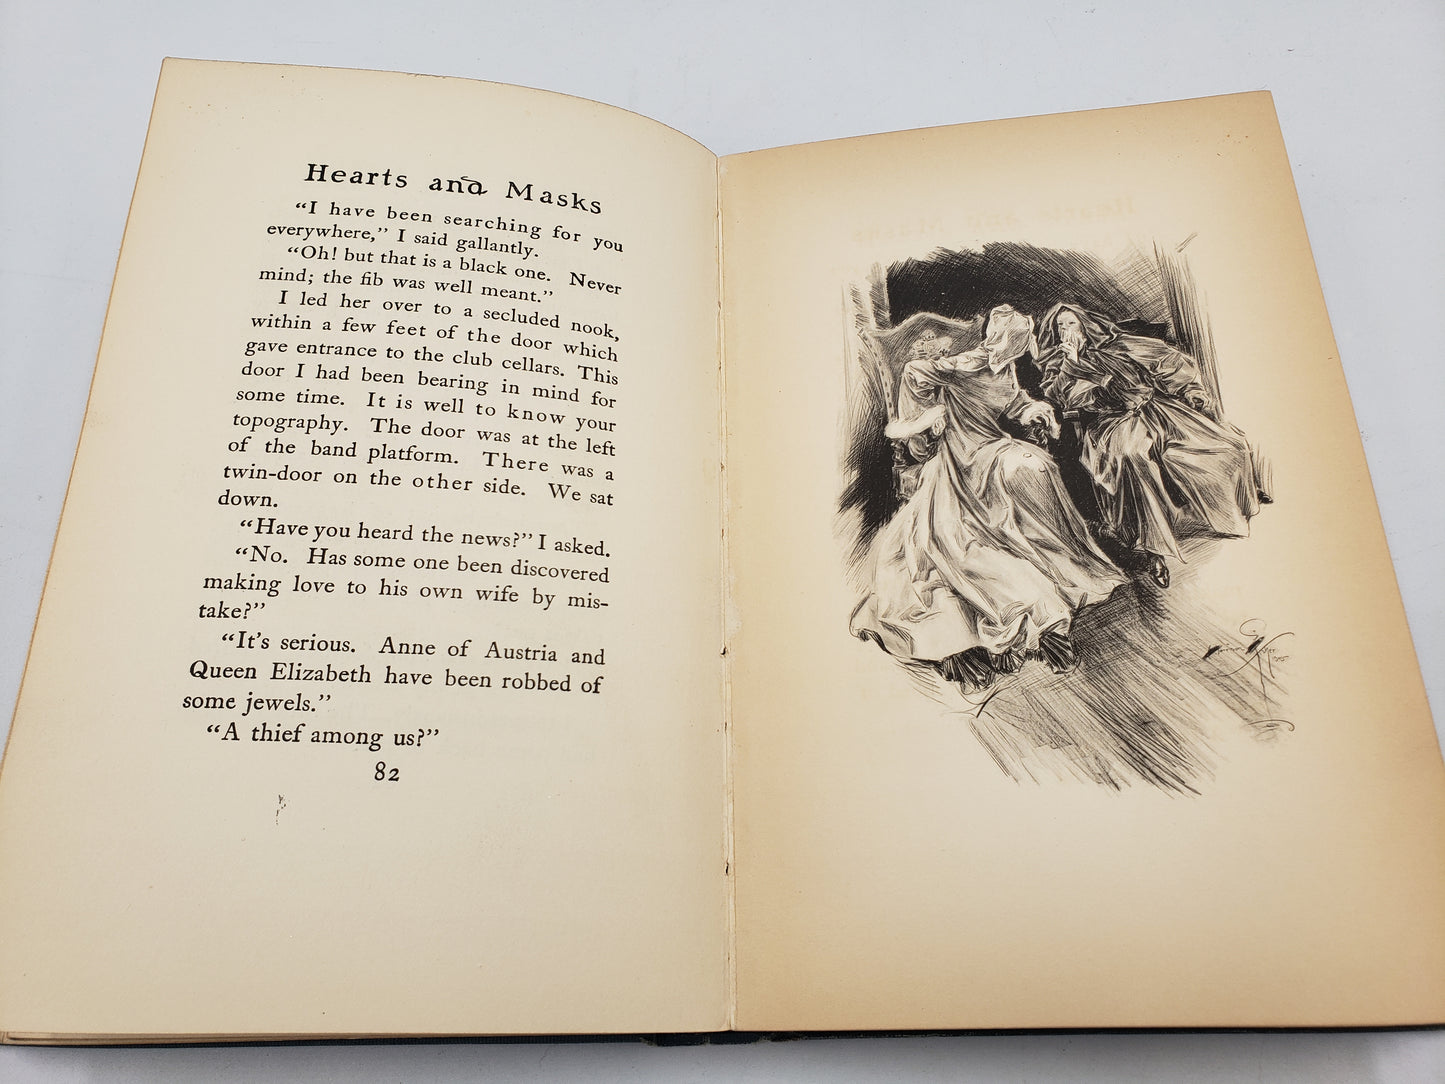 Hearts and Masks
“I have been searching for you
everywhere,” I said gallantly.
“Oh! but that is a black one. Never
mind; the fib was well meant.”
I led her over to a secluded nook,
within a few feet of the door which
gave entrance to the club cellars. This
door I had been bearing in mind for
some time. It is well to know your
topography. The door was at the left
of the band platform. There was a
twin-door on the other side. We sat
down.
“Have you heard the news?” I asked.
“No. Has some one been discovered
making love to his own wife by mis-
take?”
“It's serious. Anne of Austria and
Queen Elizabeth have been robbed of
some jewels.”
“A thief among us?”
82